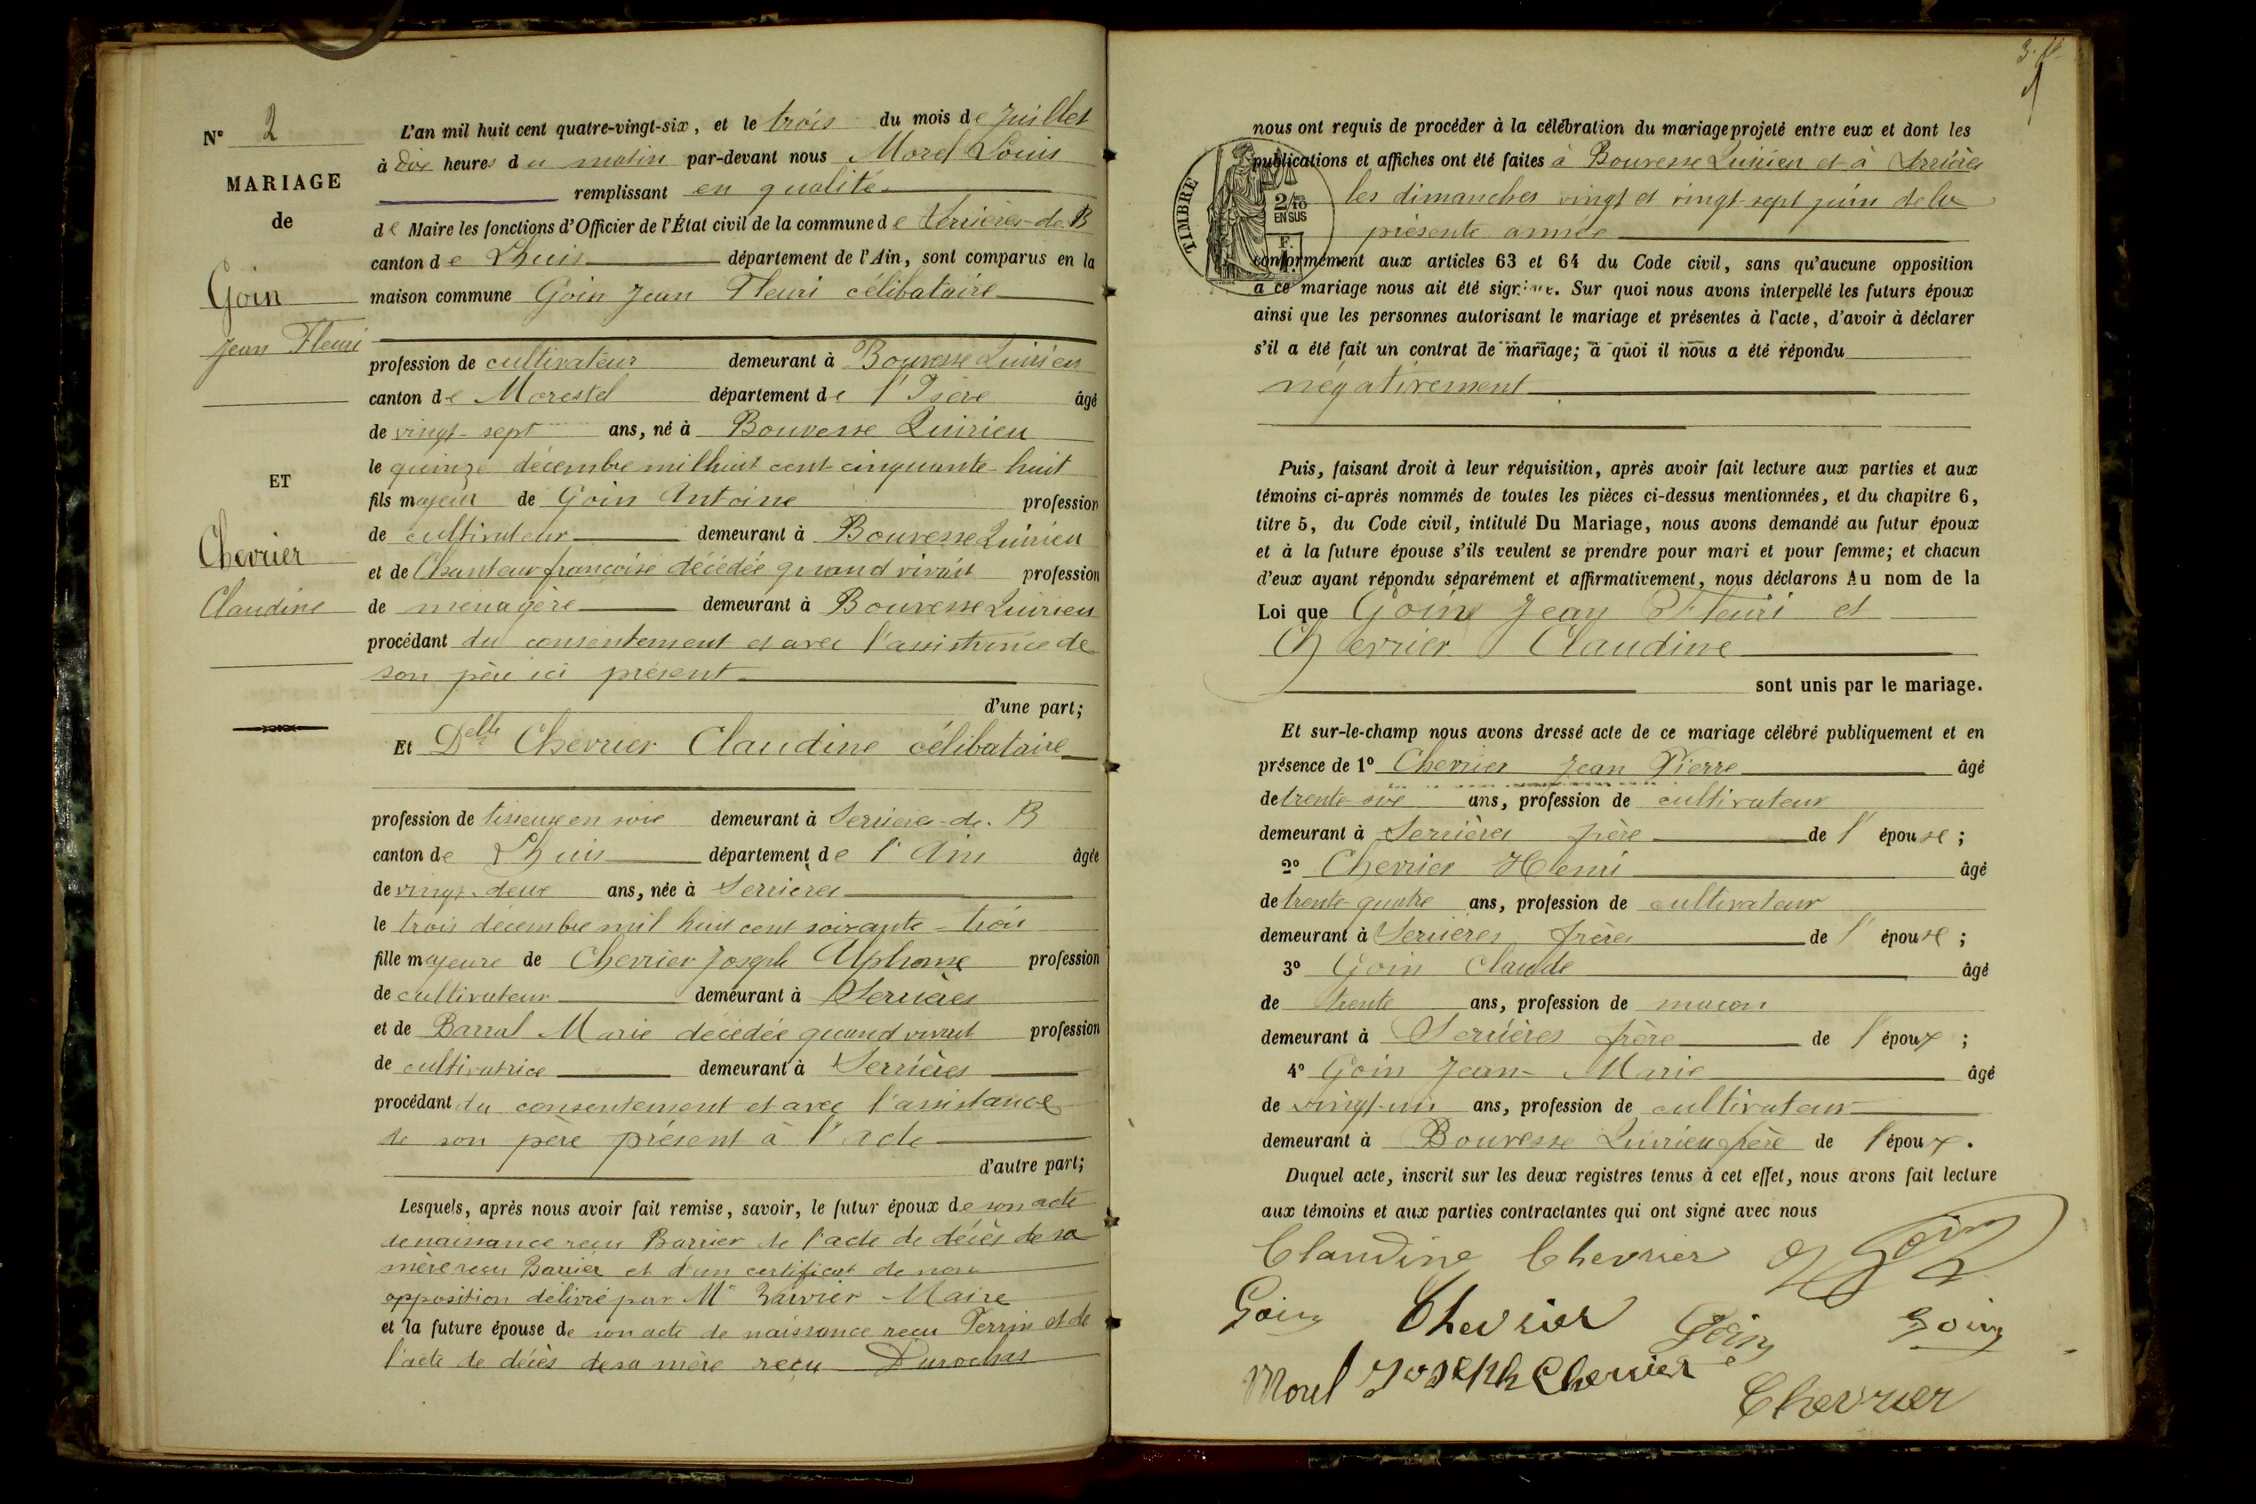 N° 2
MARIAGE
de
Goin
Jean Fleuri
ET
Chevrier
Claudine
L'an mil huit cent quatre-vingt-six, et le trois du mois de Juillet
à dix heures du matin par-devant nous Morel Louis
remplissant en qualité
de Maire les fonctions d'Officier de l'État civil de la commune de Serrières-de-B
canton de Lhuis département de l'Ain, sont comparus en la
maison commune Goin Jean Fleuri célibataire
profession de cultivateur demeurant à Bouvesse Quirieu
canton de Morestel département de l'Isère âgé
de vingt-sept ans, né à Bouvesse Quirieu
le quinze décembre mil huit cent cinquante-huit
fils majeur de Goin Antoine profession
de cultivateur demeurant à Bouvesse Quirieu
et de Chanteur françoise décédée quand vivait profession
de ménagère demeurant à Bouvesse Quirieu
procédant du consentement et avec l'assistance de
son père ici présent
d'une part;
Et Delle Chevrier Claudine célibataire
profession de tisseuse en soie demeurant à Serrières-de-B
canton de Lhuis département de l'Ain âgée
de vingt-deux ans, née à Serrières
le trois décembre mil huit cent soixante-trois
fille majeure de Chevrier Joseph Alphonse profession
de cultivateur demeurant à Serrières
et de Barral Marie décédée quand vivait profession
de cultivatrice demeurant à Serrières
procédant du consentement et avec l'assistance
de son père présent à l'acte
d'autre part;
Lesquels, après nous avoir fait remise, savoir, le futur époux de son acte
de naissance reçu Barrier de l'acte de décès de sa
mère reçu Barrier et d'un certificat de non
opposition délivré par Mr Maire
et la future épouse de son acte de naissance reçu Perrin et de
l'acte de décès de sa mère reçu Durochat
nous ont requis de procéder à la célébration du mariage projeté entre eux et dont les
publications et affiches ont été faites à Bouvesse Quirieu et à Serrières
les dimanches vingt et vingt-sept juin de la
présente année
TIMBRE
2/10
EN SUS
F.
conformément aux articles 63 et 64 du Code civil, sans qu'aucune opposition
à ce mariage nous ait été signifiée. Sur quoi nous avons interpellé les futurs époux
ainsi que les personnes autorisant le mariage et présentes à l'acte, d'avoir à déclarer
s'il a été fait un contrat de mariage; à quoi il nous a été répondu
négativement
Puis, faisant droit à leur réquisition, après avoir fait lecture aux parties et aux
témoins ci-après nommés de toutes les pièces ci-dessus mentionnées, et du chapitre 6,
titre 5, du Code civil, intitulé Du Mariage, nous avons demandé au futur époux
et à la future épouse s'ils veulent se prendre pour mari et pour femme; et chacun
d'eux ayant répondu séparément et affirmativement, nous déclarons Au nom de la
Loi que Goin Jean Fleuri et
Chevrier Claudine
sont unis par le mariage.
Et sur-le-champ nous avons dressé acte de ce mariage célébré publiquement et en
présence de 1° Chevrier Jean Pierre âgé
de trente-six ans, profession de cultivateur
demeurant à Serrières frère de l'épouse;
2° Chevrier Henri âgé
de trente-quatre ans, profession de cultivateur
demeurant à Serrières frères de l'épouse;
3° Goin Claude âgé
de trente ans, profession de macon
demeurant à Serrières frère de l'époux;
4° Goin Jean-Marie âgé
de vingt-un ans, profession de cultivateur
demeurant à Bouvesse Quirieu frère de l'époux.
Duquel acte, inscrit sur les deux registres tenus à cet effet, nous avons fait lecture
aux témoins et aux parties contractantes qui ont signé avec nous
Claudine Chevrier Goin
Goin Chevrier Goin Goin
Morel Joseph Chevrier
Chevrier